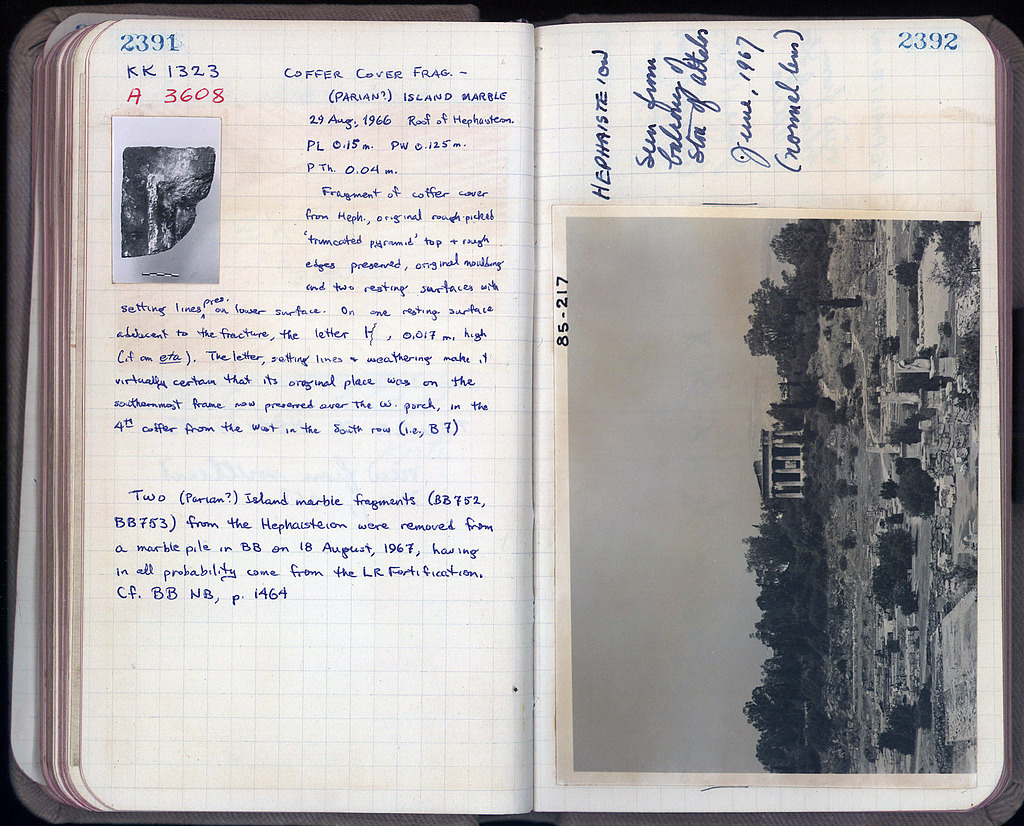 2391
KK 1323
A 3608
COFFER COVER FRAG. –
(PARIAN?) ISLAND MARBLE
29 Aug, 1966 Roof of Hephaisteion.
PL 0.15 m. PW 0.125 m.
P Th. 0.04 m.
Fragment of coffer cover
from Heph., original rough-picked
'truncated pyramid' top + rough
edges preserved, original moulding
and two resting surfaces with
setting lines pres. on lower surface. On one resting surface
adjacent to the fracture, the letter , 0.017 m. high
(if an eta). The letter, setting lines + weathering make it
virtually certain that its original place was on the
southernmost frame now preserved over the W. porch, in the
4th coffer from the West in the South row (i.e., B7)
Two (Parian?) Island marble fragments (BB752,
BB753) from the Hephaisteion were removed from
a marble pile in BB on 18 August, 1967, having
in all probability come from the LR Fortification.
Cf. BB NB, p. 1464
2392
HEPHAISTEION
Seen from
balcony of
Stoa of Attalos
June, 1967
(normal lens)
85-217